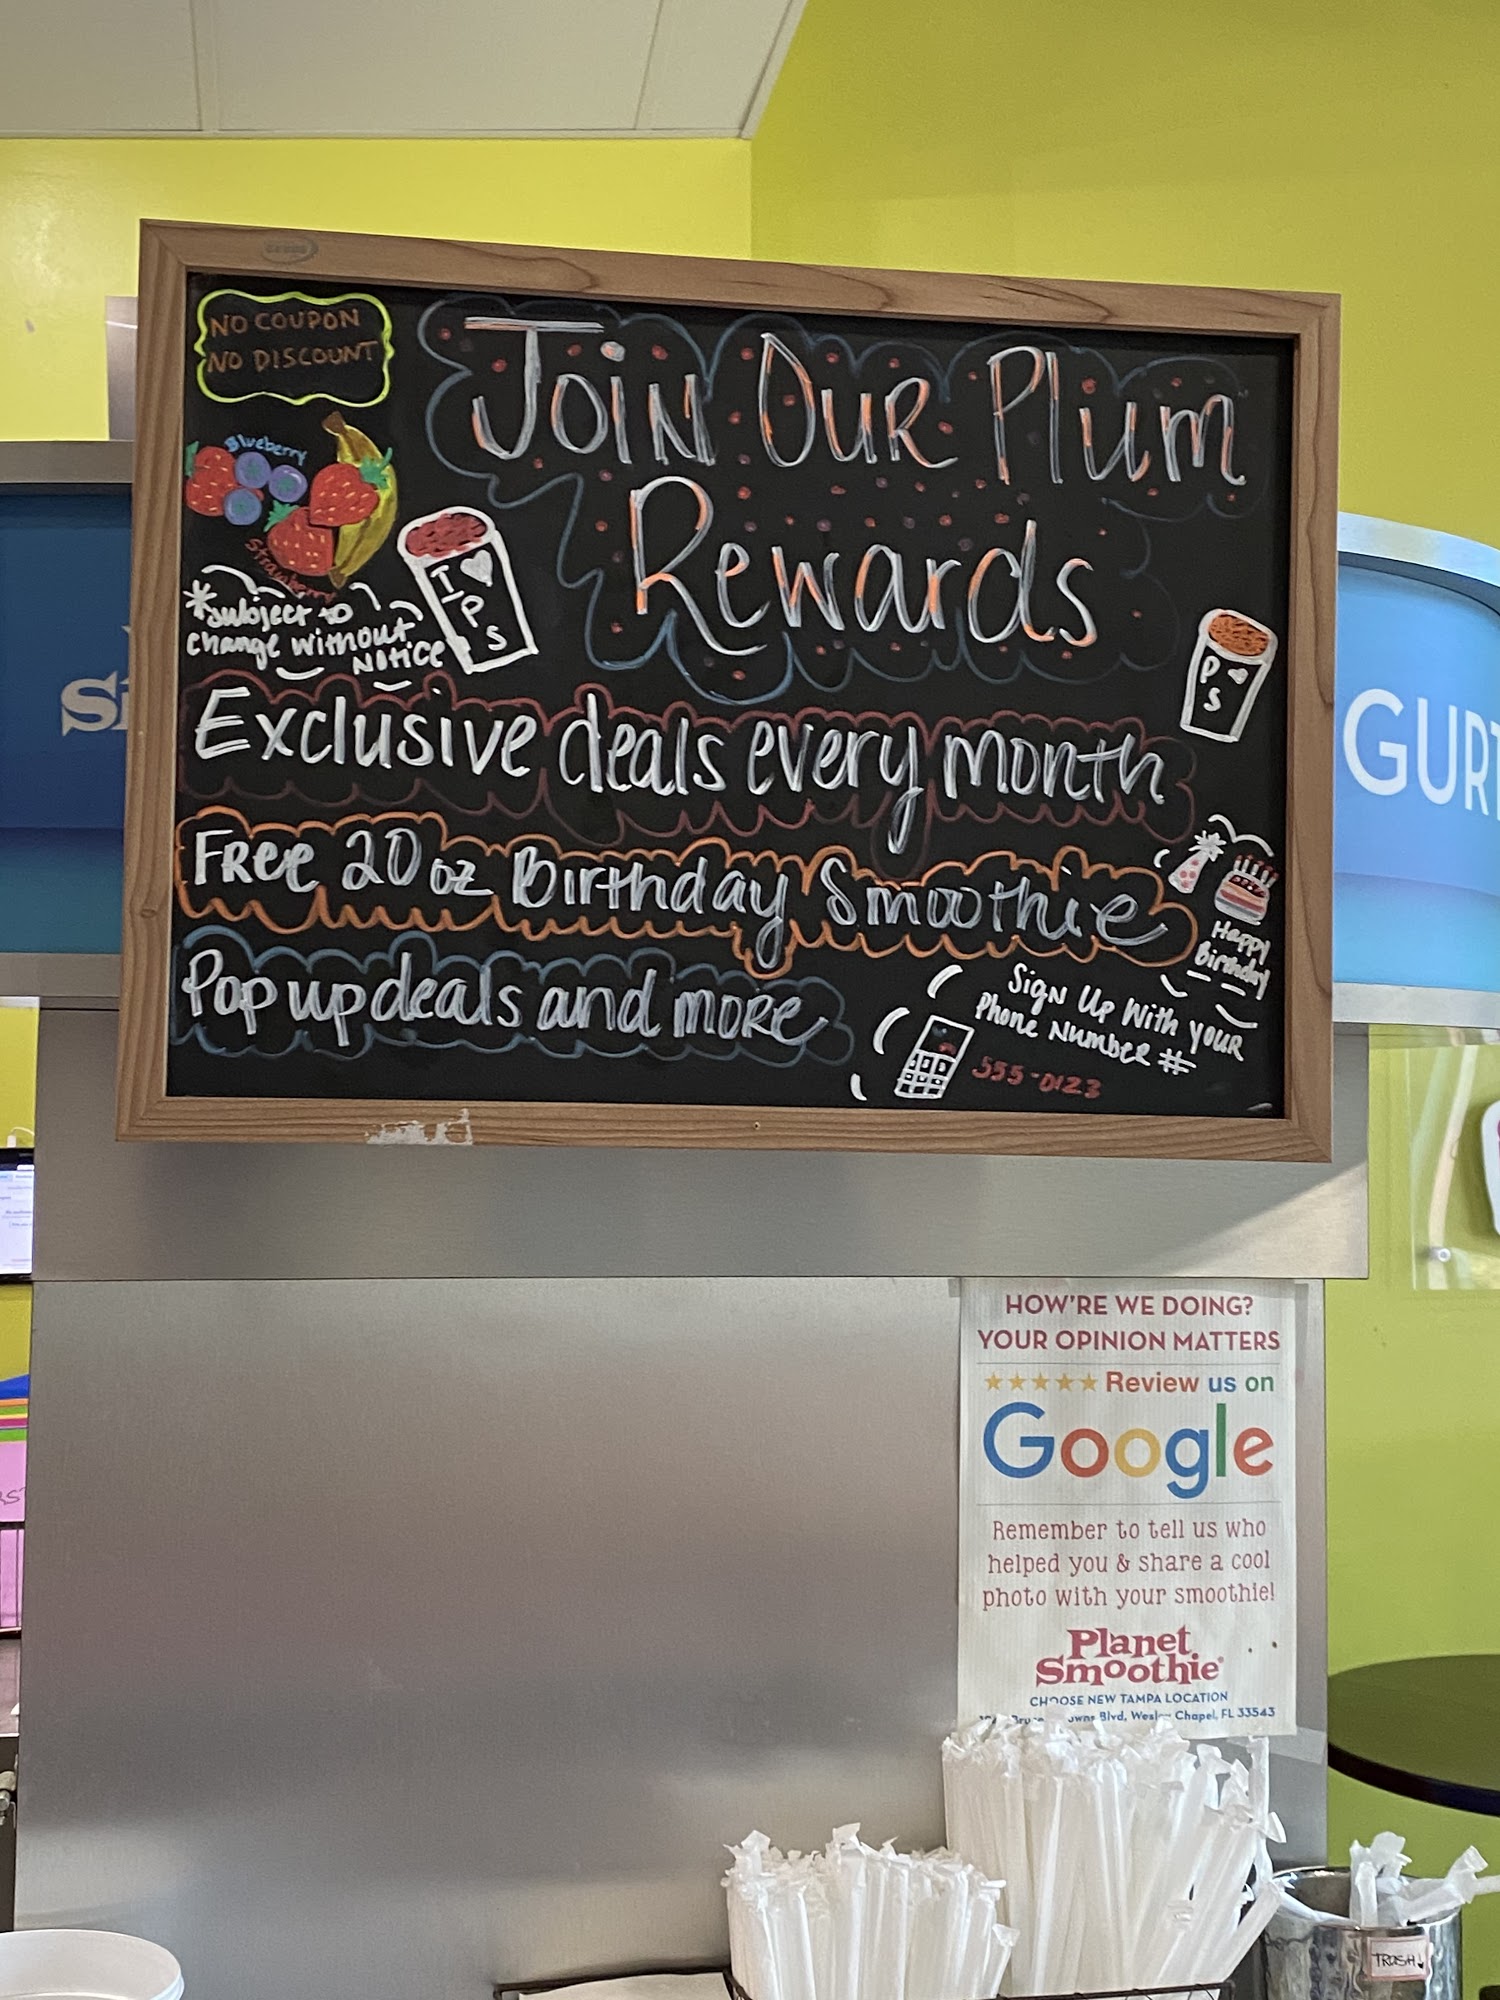 NO COUPON
NO DISCOUNT
Join Our Plum
Rewards
Blueberry
Strawberry
I ♥
P
S
*subject to
change without
Notice
P ♥
S
Exclusive deals every month
Free 20 oz Birthday Smoothie
Happy
Birthday
Pop up deals and more
Sign Up With Your
Phone Number #
555-0123
GURT
HOW'RE WE DOING?
YOUR OPINION MATTERS
★★★★★ Review us on
Google
Remember to tell us who
helped you & share a cool
photo with your smoothie!
Planet
Smoothie®
CHOOSE NEW TAMPA LOCATION
Blvd, Wesley Chapel, FL 33543
TRASH!